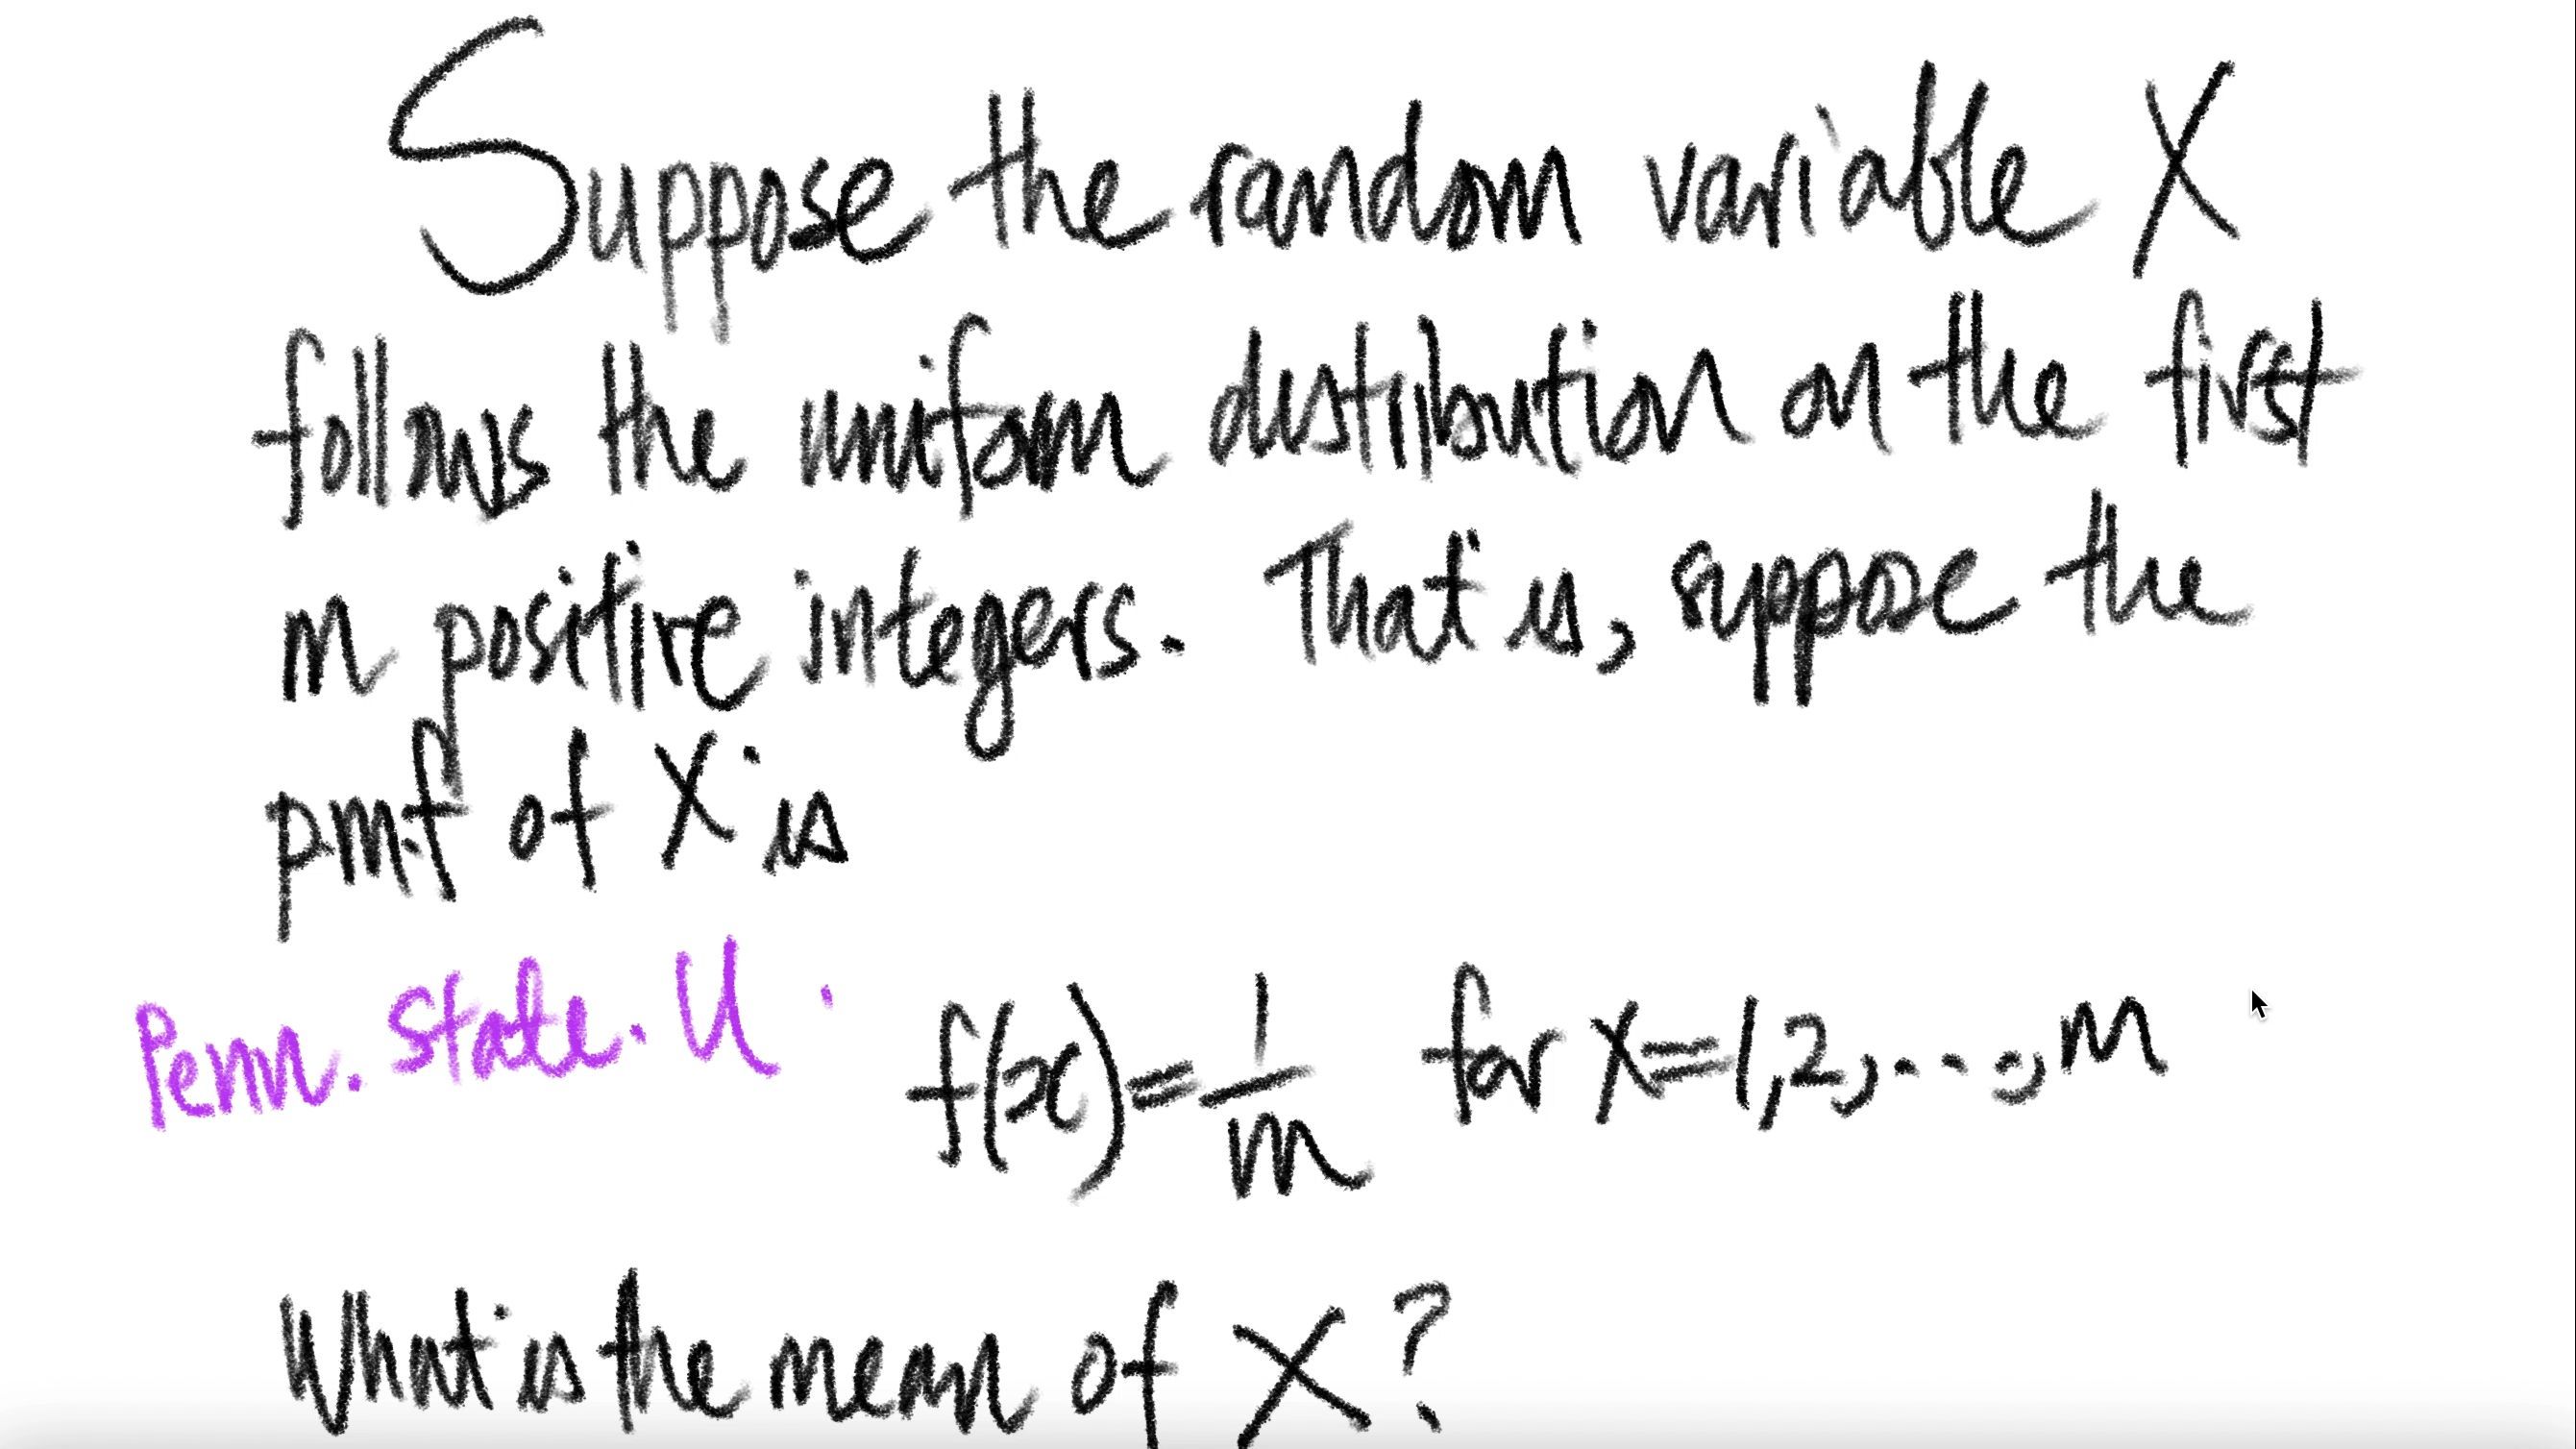 Suppose the random variable X
follows the uniform distribution on the first
m positive integers. That is, suppose the
p.m.f of X is
Penn. State. U.
f(x)=1/m for x=1,2,...,m
What is the mean of X?